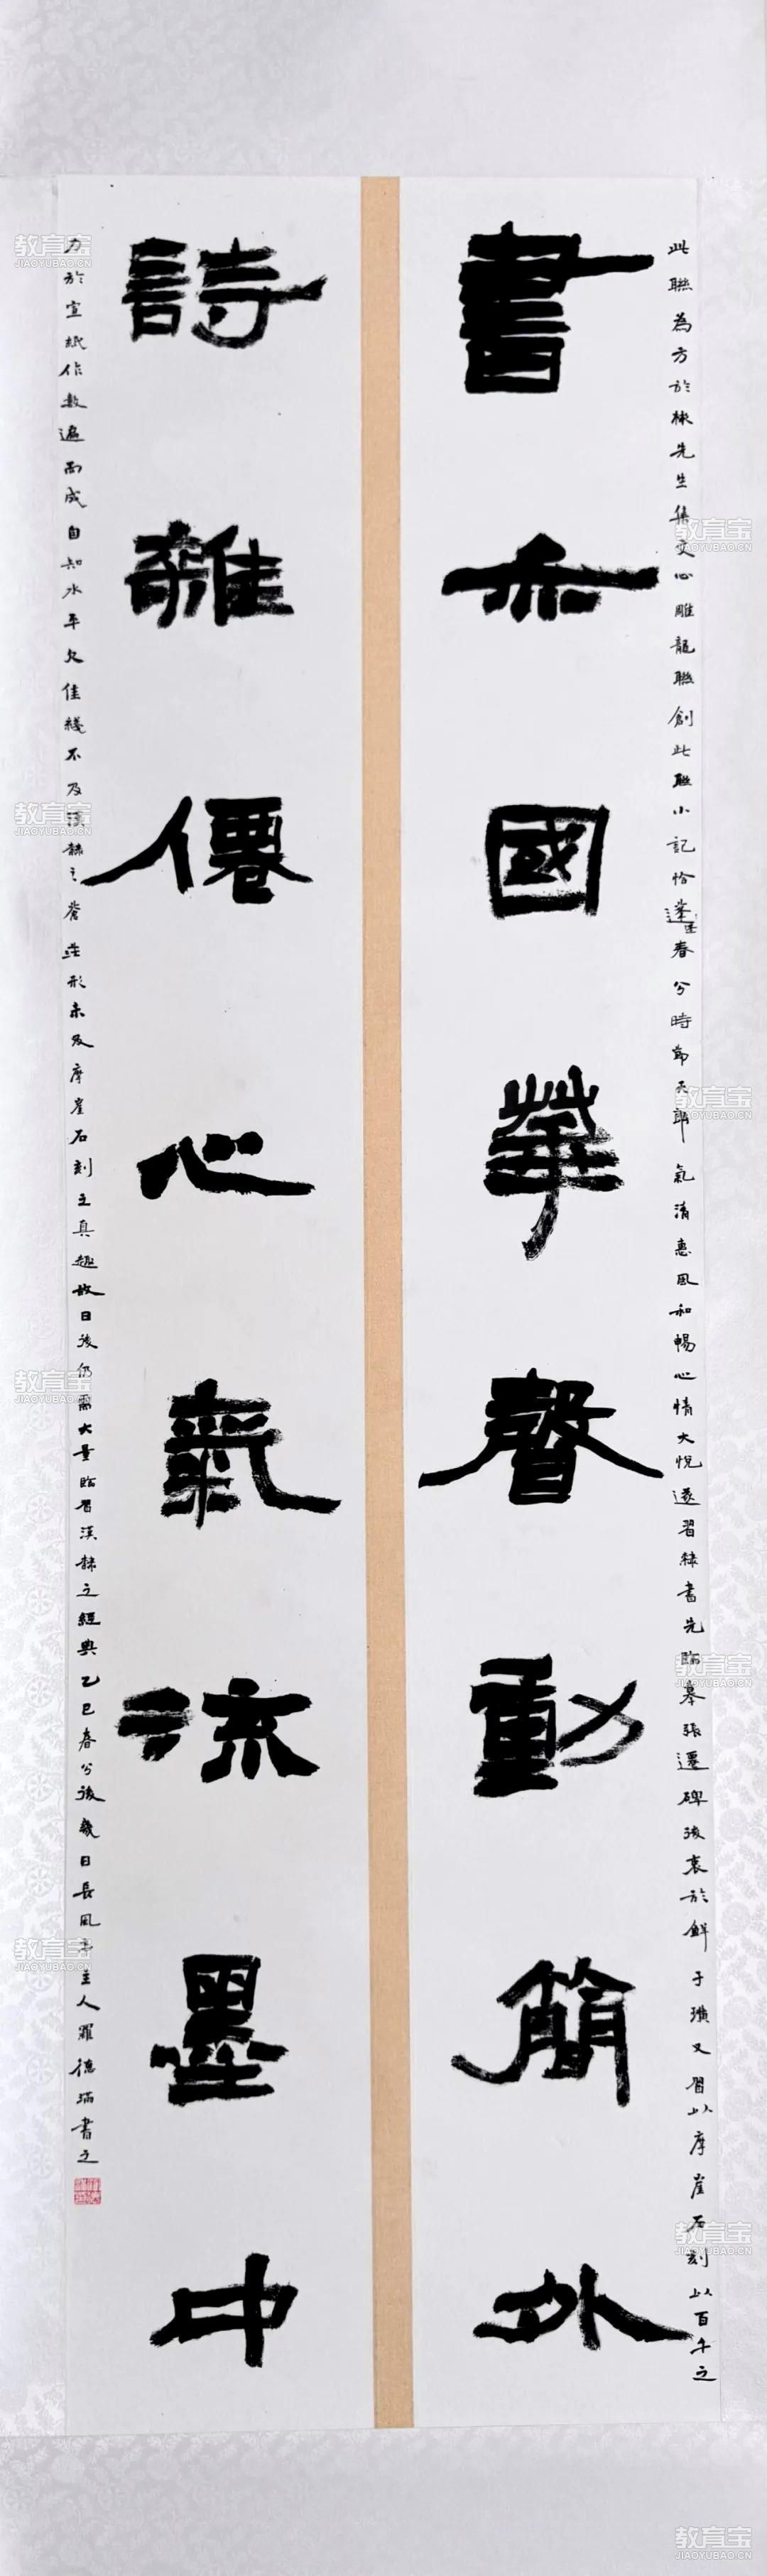 書亦國華聲動簡外
詩雜僊心氣流墨中
此聯為方於彬先生集文心雕龍聯創此聯小記恰逢春分時節天朗氣清惠風和暢心情大悅遂習隸書先臨摹張遷碑後衷於鮮于璜又習以摩崖石刻以百千之
力於宣紙作數遍而成自知水平欠佳綫不及漢隸之蒼莊形未及摩崖石刻之真趣故日後仍需大量臨習漢隸之經典乙巳春分後幾日長風主人羅德瑞書之
教育宝
JIAOYUBAO.CN